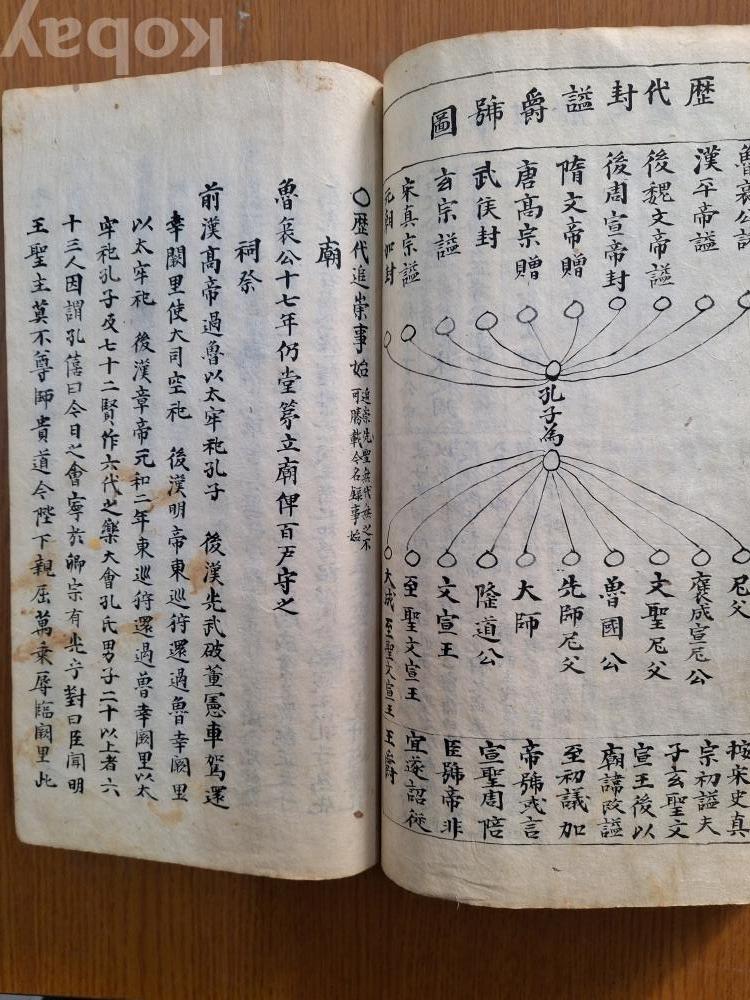 kobay
歷代封謚爵號圖
魯哀公誄
漢平帝謚
後魏文帝謚
後周宣帝封
隋文帝贈
唐高宗贈
武侯封
玄宗謚
宋真宗謚
元朝加封
孔子為
尼父
褒成宣尼公
文聖尼父
魯國公
先師尼父
大師
隆道公
文宣王
至聖文宣王
大成至聖文宣王
按宋史真
宗初謚夫
子玄聖文
宣王後以
廟諱改謚
至初議加
帝號或言
宣聖周陪
臣號帝非
宜遂詔從
王爵
○歷代追崇事始
追崇先聖無代無之不
可勝載今名錄事始
廟
魯哀公十七年仍堂第立廟俾百戶守之
祠祭
前漢高帝過魯以太牢祀孔子 後漢光武破董憲車駕還
幸闕里使大司空祀 後漢明帝東巡狩還過魯幸闕里
以太牢祀 後漢章帝元和二年東巡狩還過魯幸闕里以太
牢祀孔子及七十二賢作六代之樂大會孔氏男子二十以上者六
十三人因謂孔僖曰今日之會寧於卿宗有光乎對曰臣聞明
王聖主莫不尊師貴道今陛下親屈萬乘辱臨闕里此